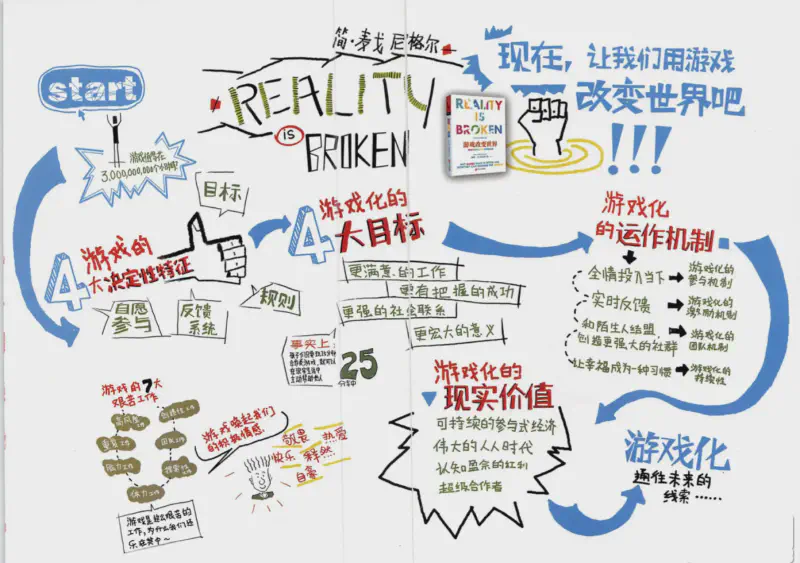 简·麦戈尼格尔
REALITY
IS
BROKEN
现在，让我们用游戏
改变世界吧
!!!
REALITY
IS
BROKEN
游戏改变世界
start
3,000,000,000个小时
目标
4
游戏的
大决定性特征
自愿
参与
反馈
系统
规则
4
游戏化的
大目标
更满意的工作
更有把握的成功
更强的社会联系
更宏大的意义
事实上:
25
分钟
游戏化
的运作机制
全情投入当下
游戏化的
参与机制
实时反馈
游戏化的
激励机制
和陌生人结盟，
创造更强大的社群
游戏化的
团队机制
让幸福成为一种习惯
游戏化的
持续性
游戏的7大
艰苦工作
高风险工作
创造性工作
重复工作
团队工作
脑力工作
探索性工作
体力工作
游戏是超出艰苦的
工作，为什么我们还
乐在其中~
游戏唤起我们
的积极情感
敬畏
热爱
快乐
释然
自豪
游戏化的
现实价值
可持续的参与式经济
伟大的人人时代
认知盈余的红利
超级合作者
游戏化
通往未来的
线索……